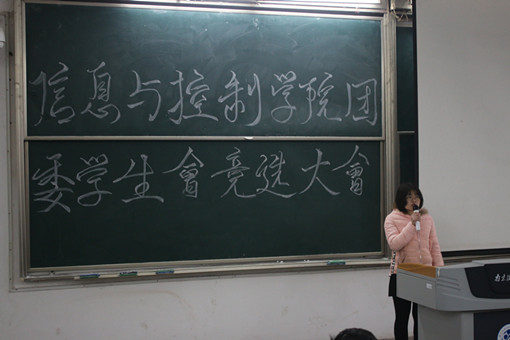 信息与控制学院团
委学生會竞选大會